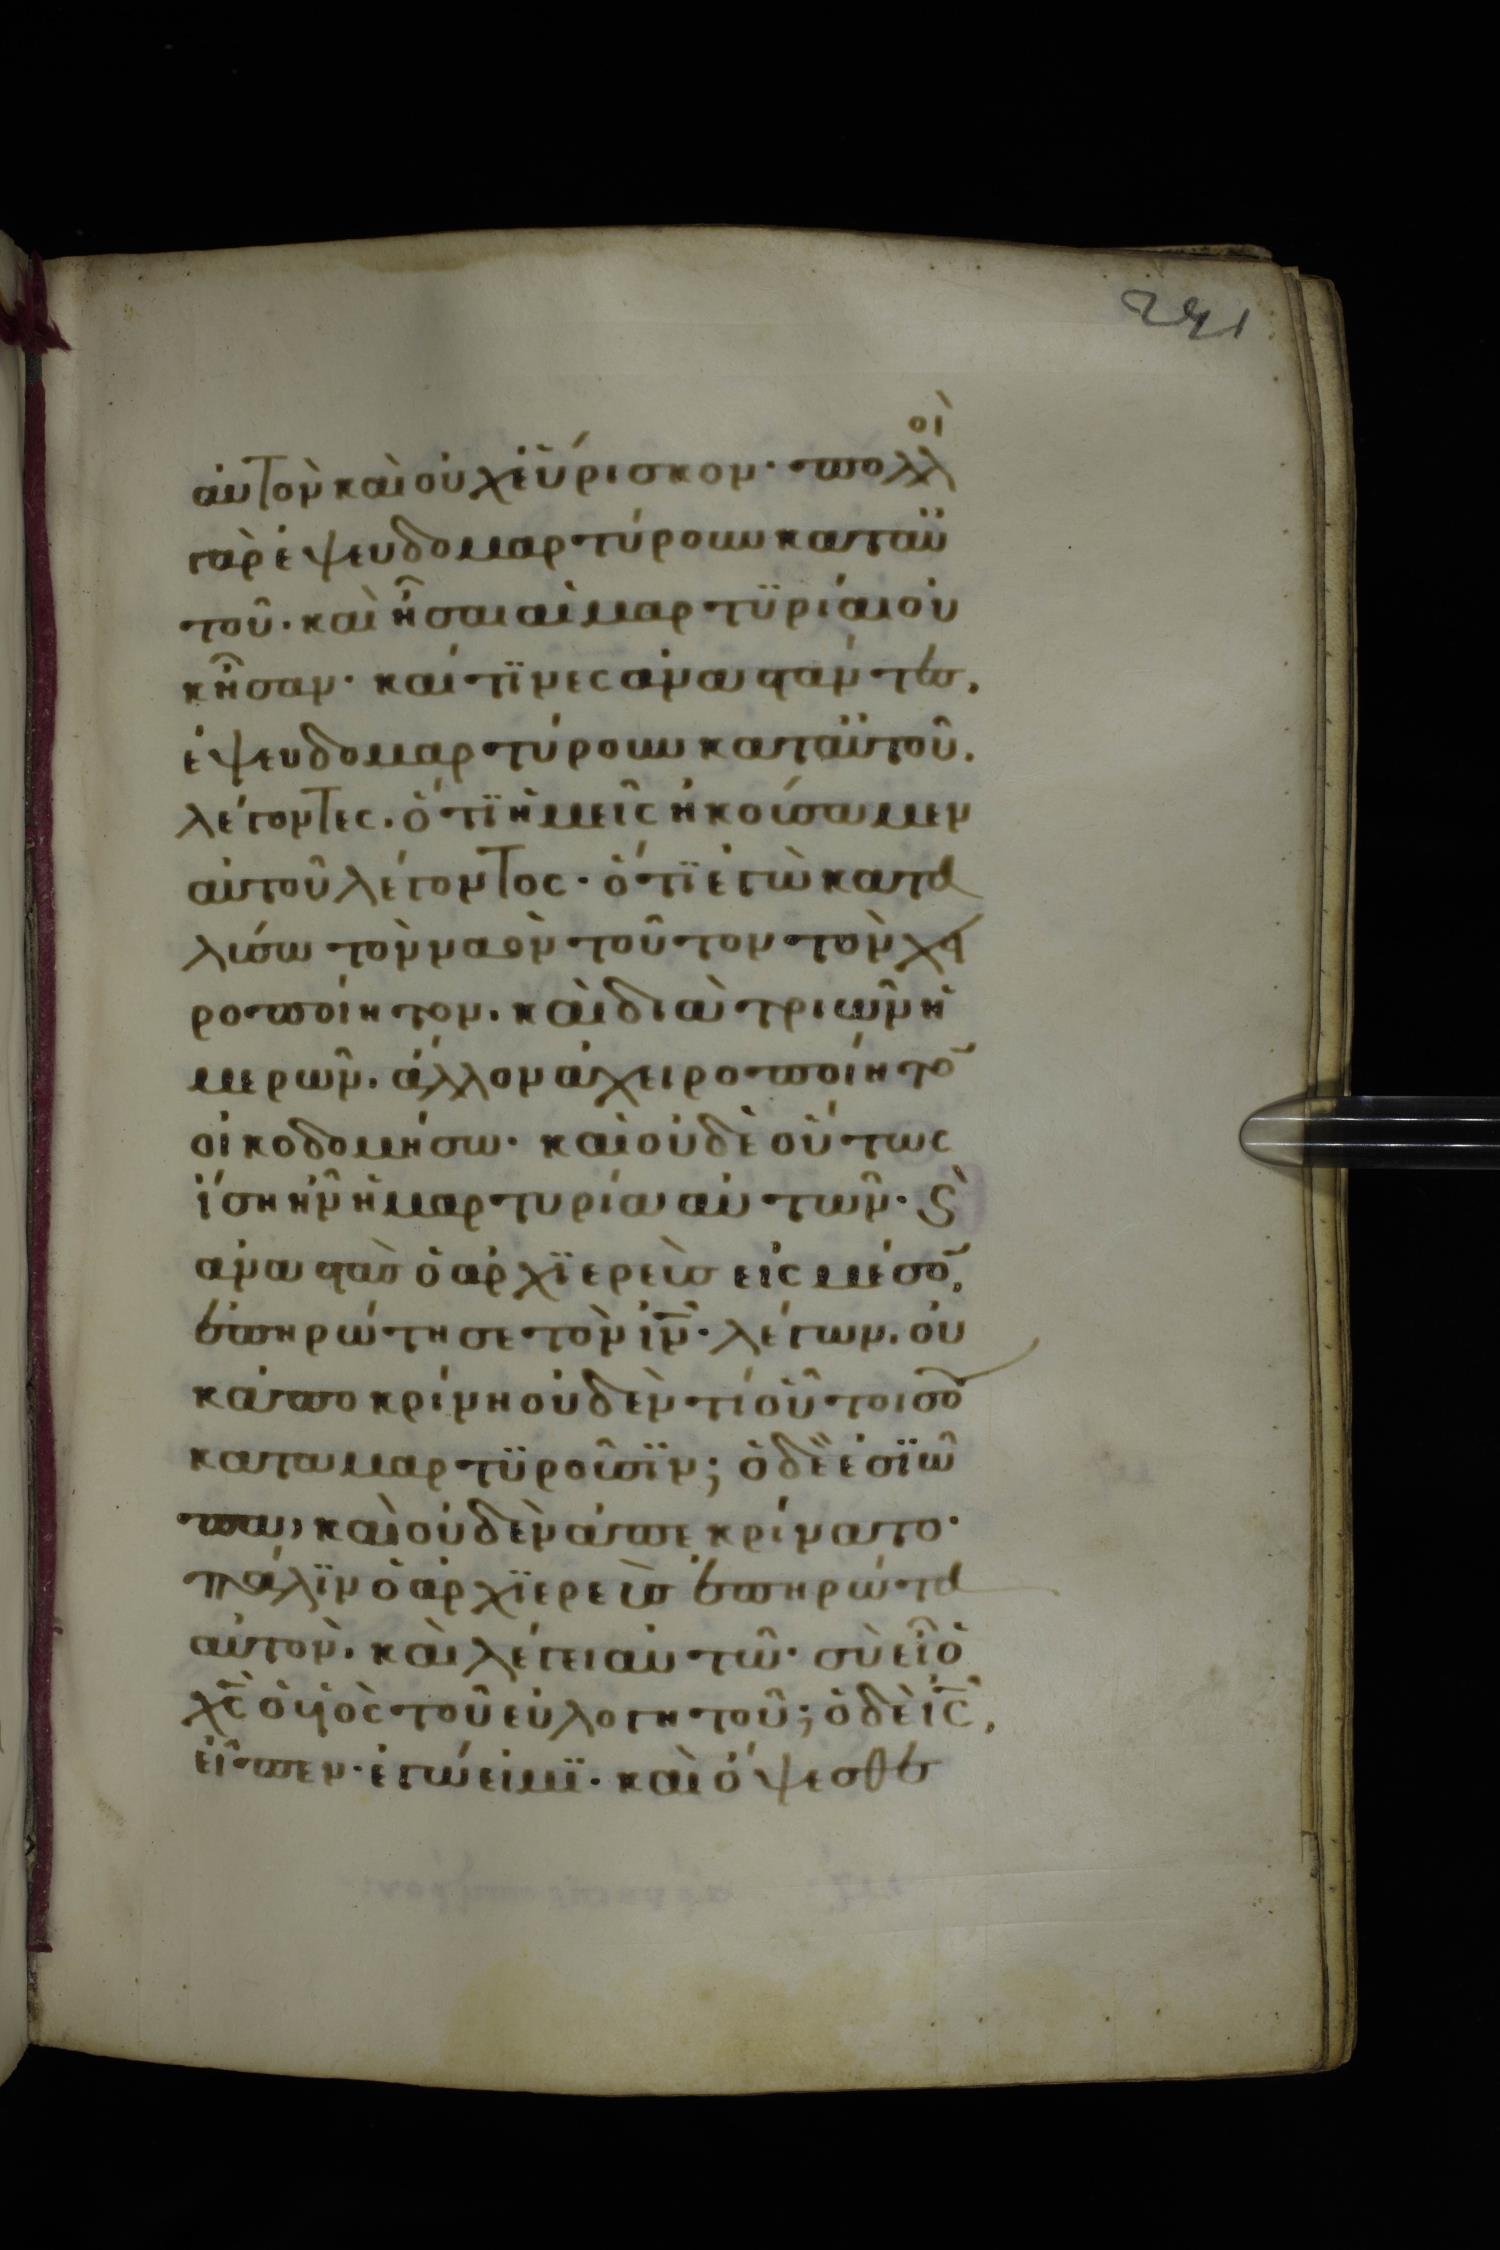 241
αὐτὸν καὶ οὐχ εὕρισκον· πολλοὶ
γὰρ ἐψευδομαρτύρουν κατ αὐ
τοῦ. καὶ ἦσαι αἱ μαρτϋρίαι οὐ
κ ἦσαν· καί τϊνες ἀναστάντες,
ἐψευδομαρτύρουν κατ αὐτοῦ.
λέγοντες. ὅτϊ ἡμεῖς ἠκούσαμεν
αὐτοῦ λέγοντος· ὅτϊ ἐγὼ κατα
λύσω τὸν ναὸν τοῦτον τὸν χει
ροποίητον. καὶ διὰ τριῶν ἡ
μερῶν. ἄλλον ἀχειροποίητο̅
οἰκοδομήσω· καὶ οὐδὲ οὕτως
ἴση ἦν ἡ μαρτυρία αὐτῶν· ϗ
ἀναστὰς ὁ ἀρχϊερεὺς εἰς μέσο̅,
ἐπηρώτησε τὸν ι̅ν̅· λέγων. οὐ
κ ἀποκρίνη οὐδὲν τί οὗτοι σου
καταμαρτϋροῦσϊν; ὁ δὲ ἐσϊώ
πα, καὶ οὐδὲν ἀπεκρίνατο·
πάλϊν ὁ ἀρχϊερεὺς ἐπηρώτα
αὐτὸν. καὶ λέγει αὐτῶ· σὺ εἶ ὁ
χ̅ς̅ ὁ υἱὸς τοῦ εὐλογητοῦ; ὁ δὲ ι̅ς̅,
εἶπεν· ἐγώ εἰμϊ. καὶ ὄψεσθε